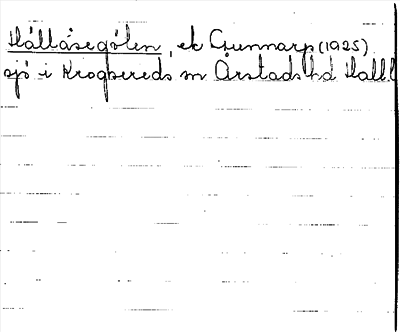 Hållåsegölen, ek Gunnarp (1925)
sjö i Krogsereds sn Årstads hd Hall